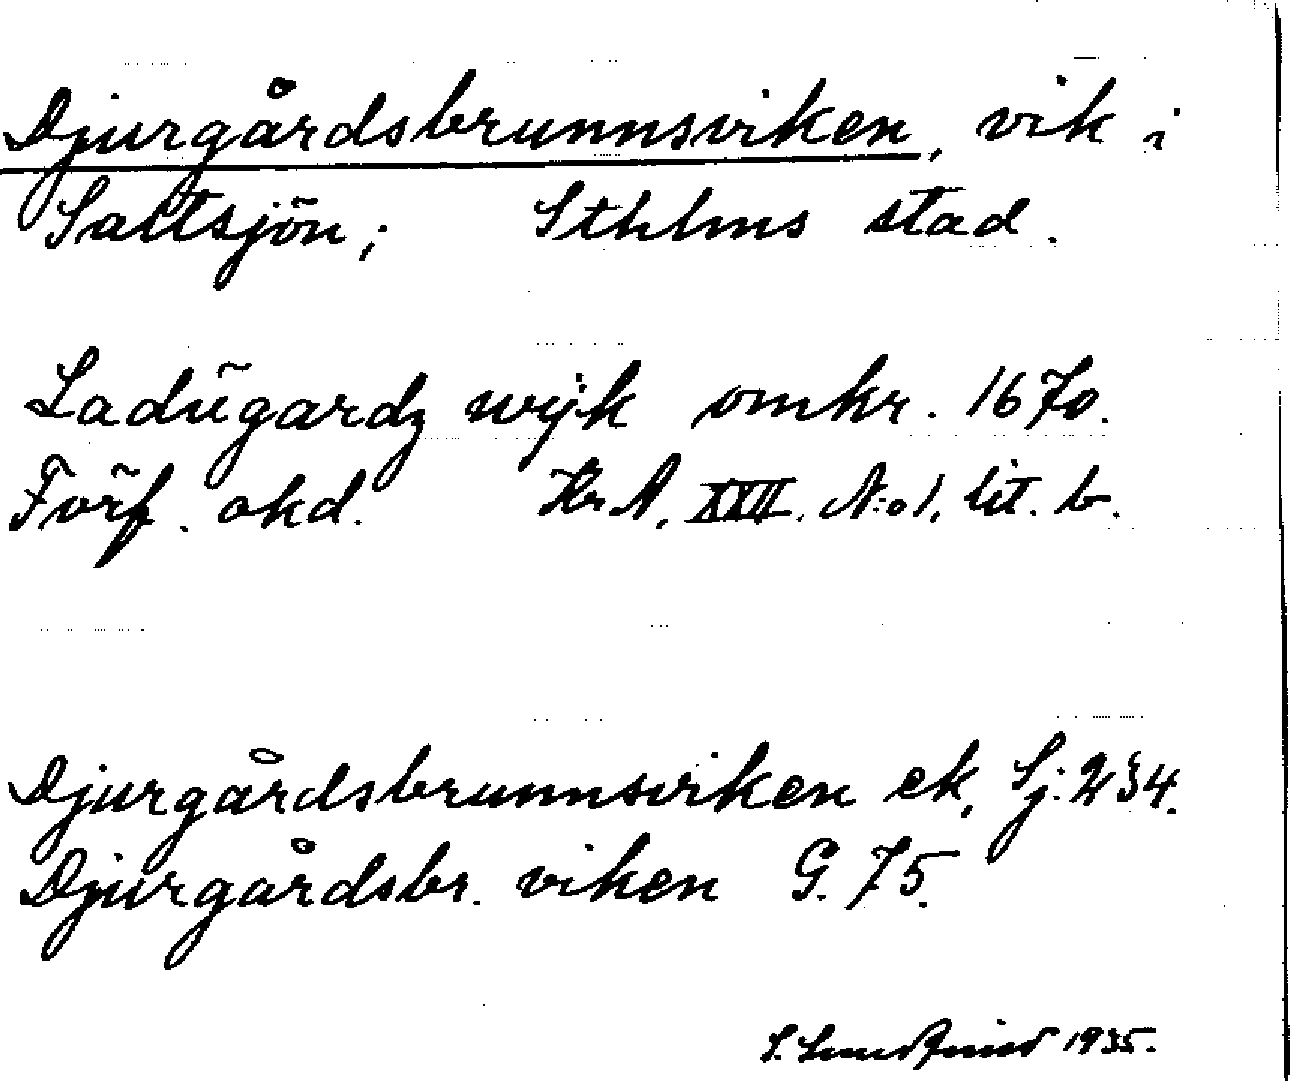 Djurgårdsbrunnsviken, vik i
Saltsjön; Sthlms stad.
Ladugardz wijk omkr. 1670.
Förf. okd. Kr.A. XXII. N:o 1, lit. b.
Djurgårdsbrunnsviken ek, Sj. 234.
Djurgårdsbr. viken G. 75.
1935.